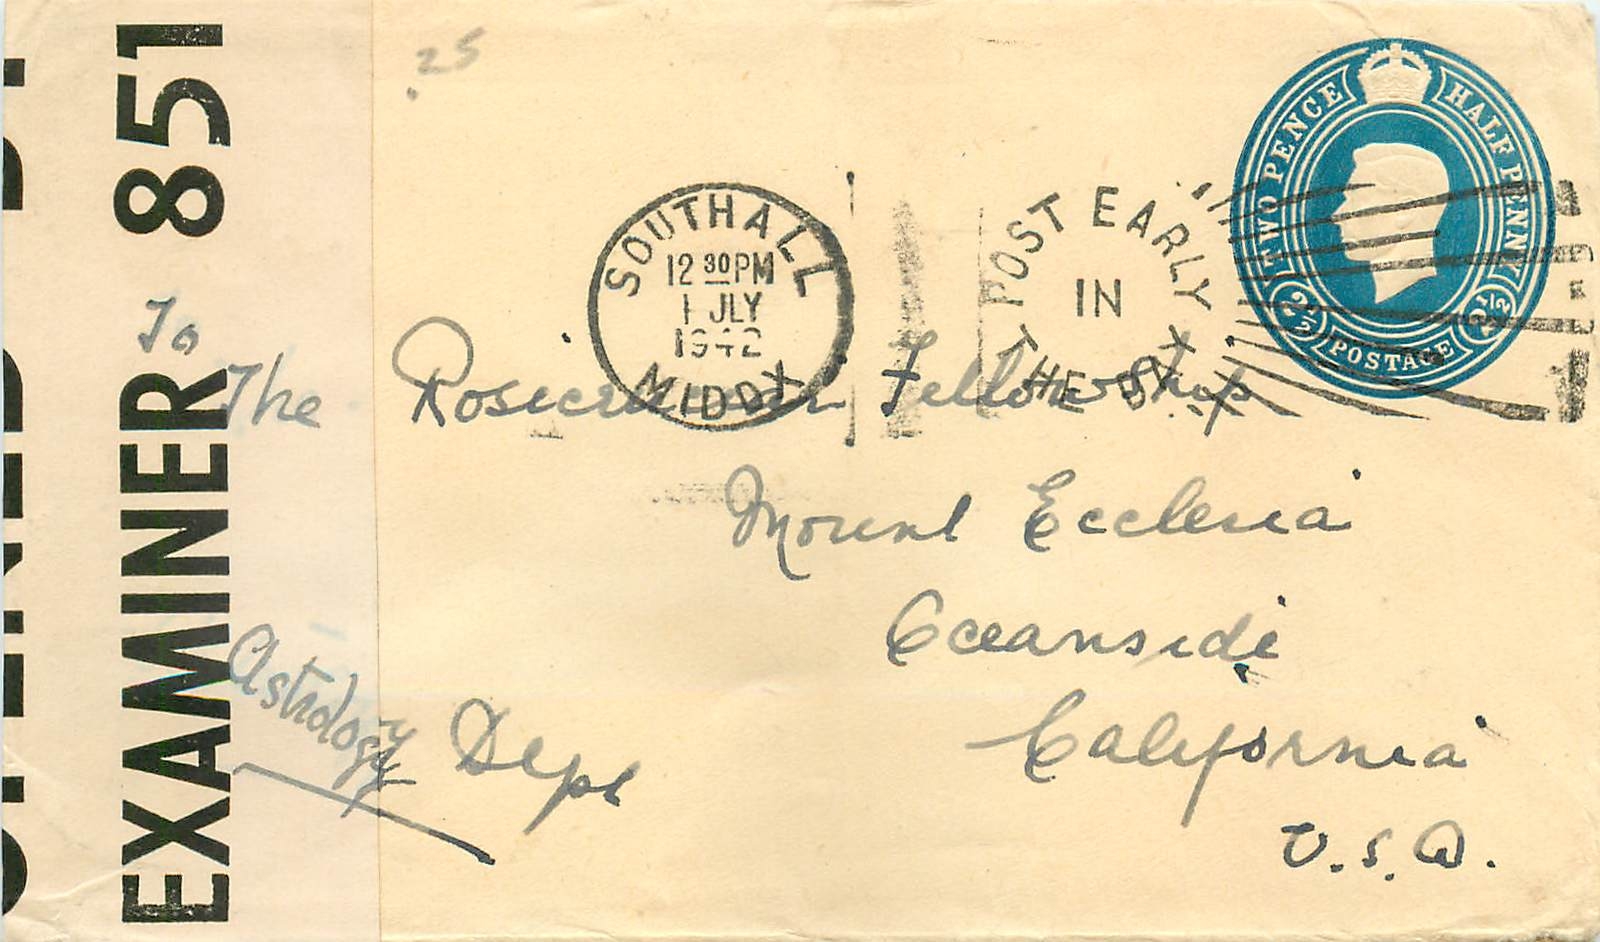 25
TWO PENCE HALF PENNY
2½ POSTAGE 2½
SOUTHALL
12 30 PM
1 JLY
1942
MIDDX
POST EARLY
IN
THE DAY
EXAMINER 851
To
The Rosicrucian Fellowship
Mount Ecclesia
Oceanside
California
U.S.A.
Astrology Dept